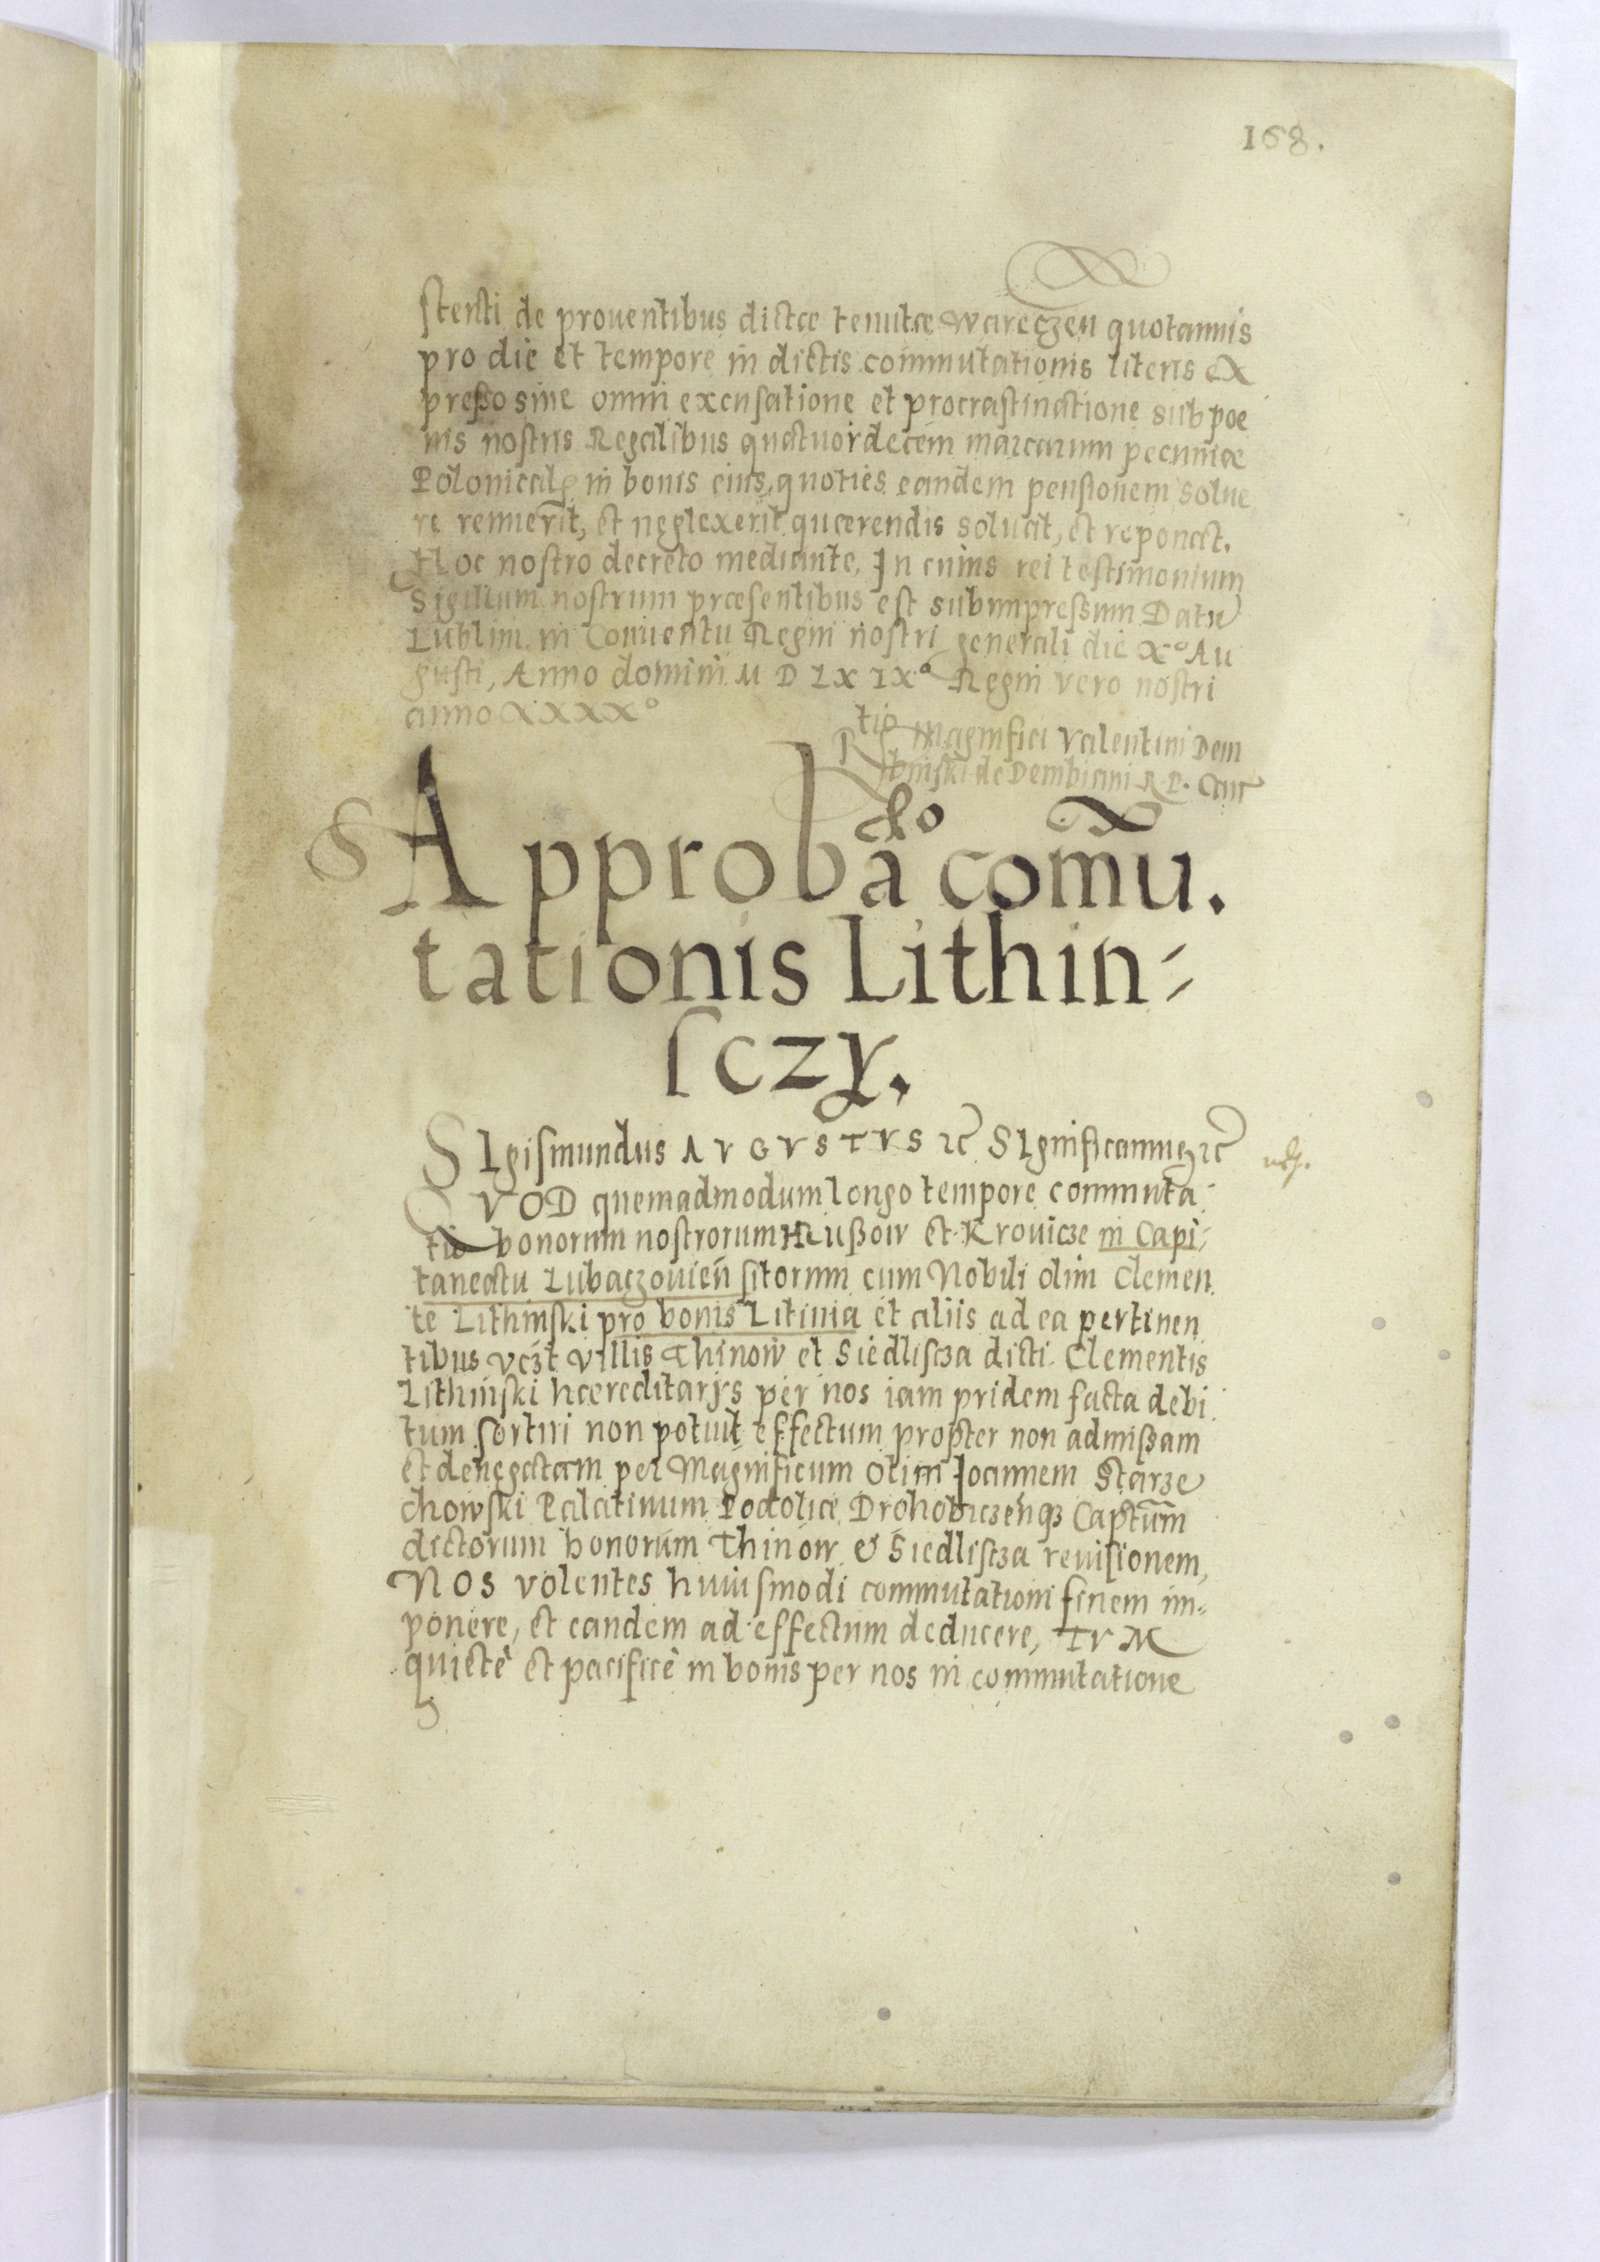 168.
stensti de prouentibus dictæ tenutæ Wareczen quotannis
pro die et tempore in dictis commutationis literis ex
presso sine omni excusatione et procrastinatione sub poe
nis nostris Regalibus quatuordecem marcarum pecuniæ
Polonicalẹ in bonis eius, quoties eandem pensionem solue
re renuerit, et neglexerit quærendis soluat, et reponat.
Hoc nostro decreto mediante, In cuius rei testimonium
Sigillum nostrum præsentibus est subimpressum Datu
Lublini in Conuentu Regni nostri generali die Xº Au
gusti, Anno domini M D LX IXº Regni vero nostri
anno XXXXº
Rtio Magnifici Valentini Dem
binski de Dembiani R. P. Canc
Approbaĉo com̃u.
tationis Lithin-
sczy.
SIgismundus AVGVSTVS ꝛc SIgnificamus ꝛc
QVOD quemadmodum longo tempore commuta
tio bonorum nostrorum Russow et Krouicze in Capi-
taneatu Lubaczouień sitorum cum Nobili olim Clemen
te Lithinski pro bonis Litinia et aliis ad ea pertinen
tibus vczt villis Thinow et Siedliscza dicti Clementis
Lithinski hæreditarijs per nos iam pridem facta debi
tum sortiri non potuit effectum propter non admissam
et denegatam per Magnificum olim Joannem Starze
chowski Palatinum Podoliæ Drohobiczeńqꝫ Captum
dictorum bonorum Thinow & Siedliscza reuisionem,
NOS volentes huiusmodi commutationi finem im-
ponere, et eandem ad effectum deducere, TVM
quietè et pacificè in bonis per nos in commutatione